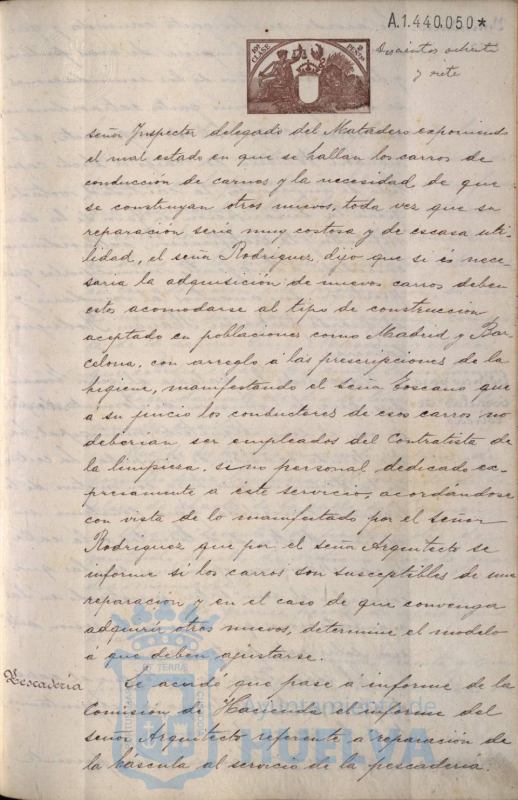 A.1.440.050*
10ª CLASE
2 PESETAS
Doscientos ochenta
y siete
señor Inspector delegado del Matadero exponiendo
el mal estado en que se hallan los carros de
conducción de carnes y la necesidad de que
se construyan otros nuevos, toda vez que su
reparación sería muy costosa y de escasa uti-
lidad, el señor Rodríguez, dijo que si és nece-
saria la adquisición de nuevos carros deben
estos acomodarse al tipo de construcción
aceptado en poblaciones como Madrid y Bar-
celona, con arreglo á las prescripciones de la
higiene, manifestando el señor Toscano que
á su juicio los conductores de esos carros no
deberían ser empleados del Contratista de
la limpieza, sino personal, dedicado ex-
presamente a éste servicio, acordándose
con vista de lo manifestado por el señor
Rodríguez que por el señor Arquitecto se
informe si los carros son susceptibles de una
reparación y en el caso de que convenga
adquirir otros nuevos, determine el modelo
á que deben ajustarse.
Pescadería
Se acordó que pase á informe de la
Comisión de Hacienda el informe del
señor Arquitecto referente a reparación de
la báscula al servicio de la pescadería.
Ayuntamiento de
HUELVA